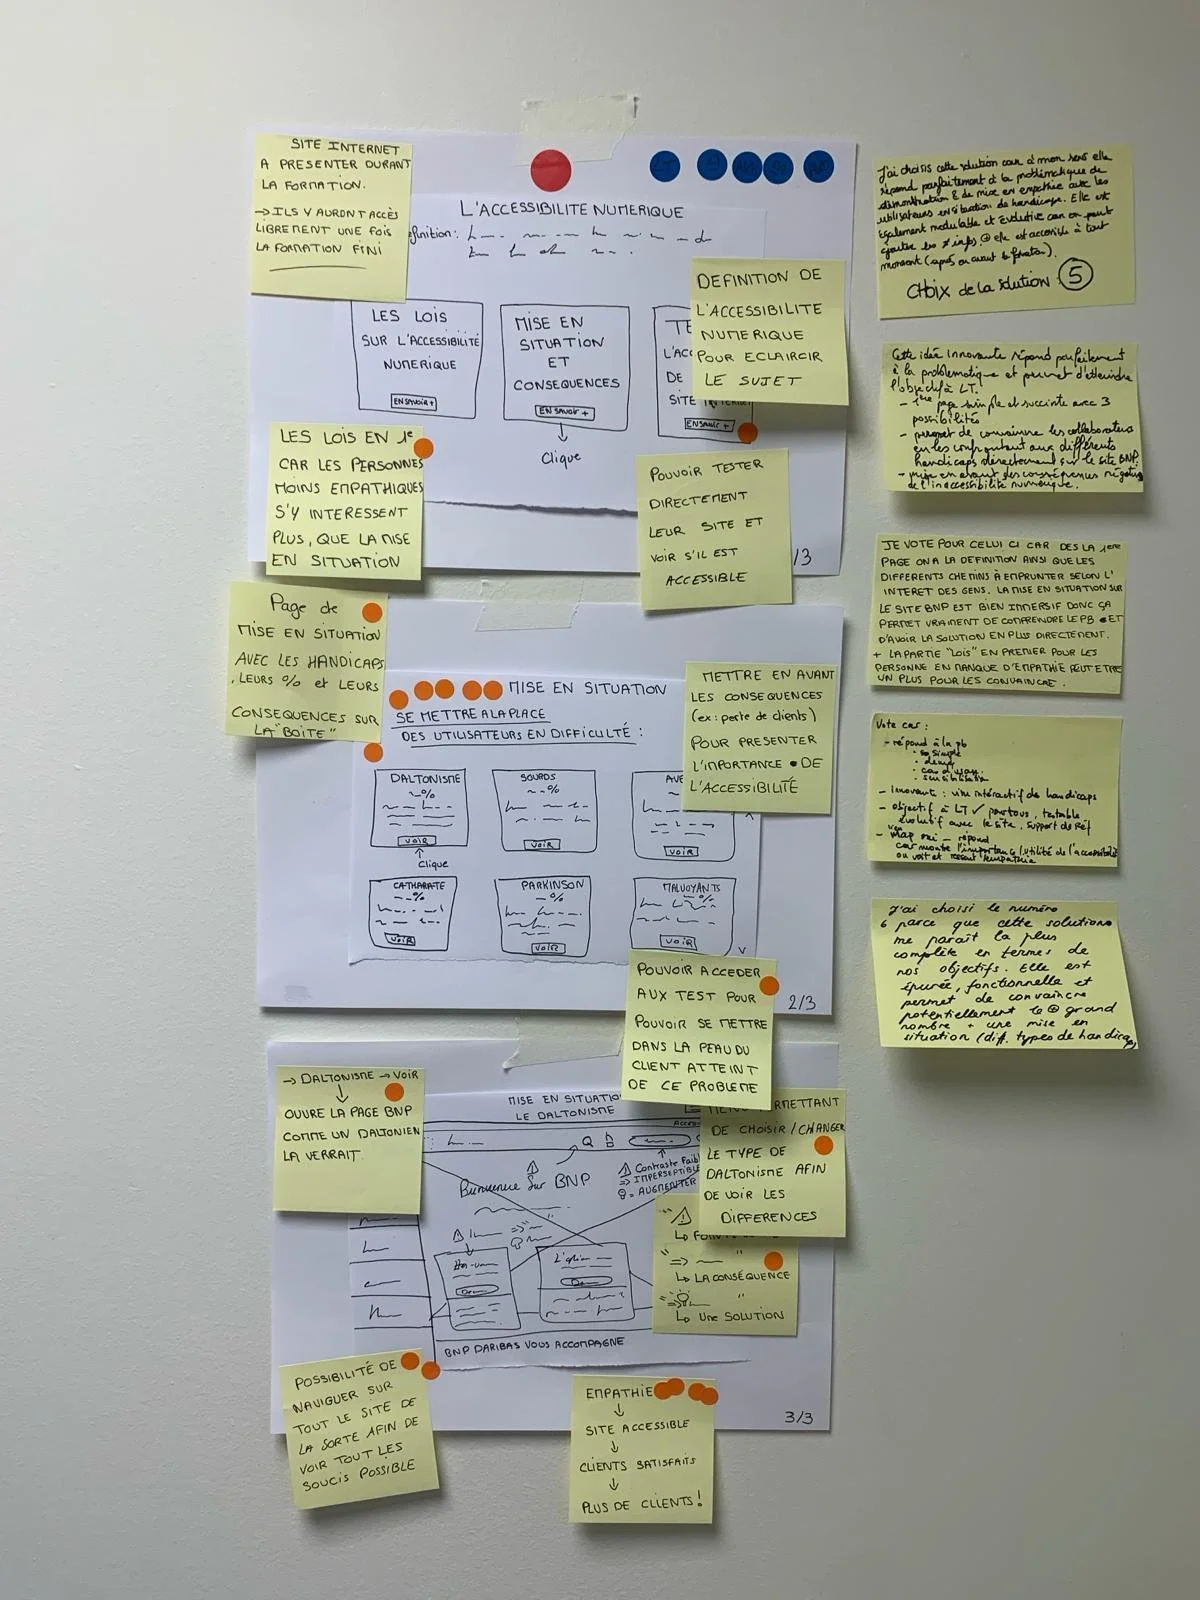 SITE INTERNET
A PRESENTER DURANT
LA FORMATION.
→ ILS Y AURONT ACCÈS
LIBREMENT UNE FOIS
LA FORMATION FINI
L'ACCESSIBILITE NUMERIQUE
finition :
LES LOIS
SUR L'ACCESSIBILITÉ
NUMERIQUE
EN SAVOIR +
MISE EN
SITUATION
ET
CONSEQUENCES
EN SAVOIR +
Clique
TE
L'ACC
DE
SITE INTERNET
EN SAVOIR +
DEFINITION DE
L'ACCESSIBILITE
NUMERIQUE
POUR ECLAIRCIR
LE SUJET
LES LOIS EN 1e
CAR LES PERSONNES
MOINS EMPATHIQUES
S'Y INTERESSENT
PLUS, QUE LA MISE
EN SITUATION
POUVOIR TESTER
DIRECTEMENT
LEUR SITE ET
VOIR S'IL EST
ACCESSIBLE
/3
Page de
MISE EN SITUATION
AVEC LES HANDICAPS
, LEURS % et LEURS
CONSEQUENCES SUR
LA "BOITE"
MISE EN SITUATION
SE METTRE A LA PLACE
DES UTILISATEURS EN DIFFICULTÉ :
METTRE EN AVANT
LES CONSEQUENCES
(ex : perte de clients)
POUR PRESENTER
L'IMPORTANCE DE
L'ACCESSIBILITÉ
DALTONISME
%
VOIR
Clique
SOURDS
%
VOIR
AVE
VOIR
CATHARATE
%
VOIR
PARKINSON
%
VOIR
MALVOYANTS
%
VOIR
2/3
POUVOIR ACCEDER
AUX TEST POUR
POUVOIR SE METTRE
DANS LA PEAU DU
CLIENT ATTEINT
DE CE PROBLEME
→ DALTONISME → VOIR
OUVRE LA PAGE BNP
COMME UN DALTONIEN
LA VERRAIT.
MISE EN SITUATIO
LE DALTONISME
Bienvenue Sur BNP
Contraste Faib
⇒ IMPERSEPTIBLE
= AUGMENTER
MENU PERMETTANT
DE CHOISIR / CHANGER
LE TYPE DE
DALTONISME AFIN
DE VOIR LES
DIFFERENCES
"⚠ "
"⇒ "
↳ LA CONSÉQUENCE
↳ Une SOLUTION
BNP PARIBAS VOUS ACCOMPAGNE
3/3
POSSIBILITÉ DE
NAVIGUER SUR
TOUT LE SITE DE
LA SORTE AFIN DE
VOIR TOUT LES
SOUCIS POSSIBLE
EMPATHIE
↓
SITE ACCESSIBLE
↓
CLIENTS SATISFAITS
↓
PLUS DE CLIENTS !
J'ai choisis cette solution car à mon sens elle
répond parfaitement à la problématique de
démonstration & de mise en empathie avec les
utilisateurs en situation de handicap. Elle est
également modulable et évolutive car on peut
ajouter les ≠ infos elle est accessible à tout
moment (après ou avant la formation).
CHOIX de la solution 5
Cette idée innovante répond parfaitement
à la problématique et permet d'atteindre
l'objectif à LT.
- 1ère page simple et succinte avec 3
possibilités
- permet de convaincre les collaborateurs
en les confrontant aux différents
handicaps directement sur le site BNP.
- mise en avant des conséquences négatives
de l'inaccessibilité numérique.
JE VOTE POUR CELUI CI CAR DES LA 1ERE
PAGE ON A LA DEFINITION AINSI QUE LES
DIFFERENTS CHEMINS À EMPRUNTER SELON L'
INTERET DES GENS. LA MISE EN SITUATION SUR
LE SITE BNP EST BIEN IMMERSIF DONC ÇA
PERMET VRAIMENT DE COMPRENDRE LE PB ET
D'AVOIR LA SOLUTION EN PLUS DIRECTEMENT.
+ LA PARTIE "LOIS" EN PREMIER POUR LES
PERSONNE EN MANQUE D'EMPATHIE PEUT ETRE
UN PLUS POUR LES CONVAINCRE.
Vote car :
- répond à la pb
• simple
• sensibilisation
- Innovante : vue intéractif des handicaps
- objectif à LT ✓ pour tous, testable
évolutif avec le site, support de réf
répond
car montre l'importance / utilité de l'accessibilité
on voit et ressent l'empathie
J'ai choisi le numéro
6 parce que cette solution
me parait la plus
complète en termes de
nos objectifs. Elle est
épurée, fonctionnelle et
permet de convaincre
potentiellement le ⊕ grand
nombre + une mise en
situation (diff. types de handicap)